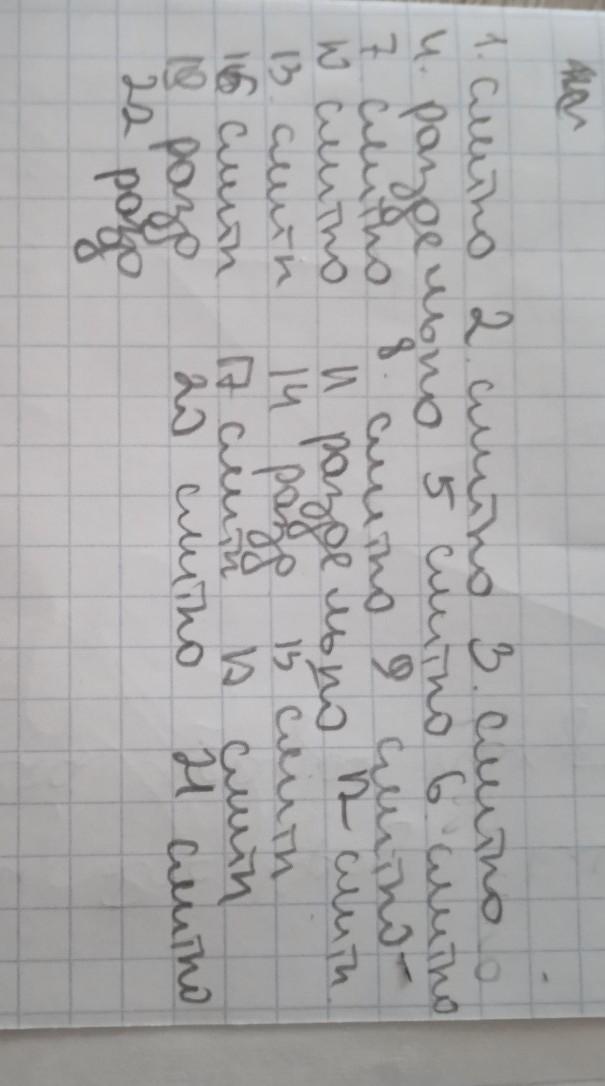 1. слитно 2. слитно 3. слитно
4. раздельно 5 слитно 6 слитно
7 слитно 8. слитно 9 слитно
10 слитно 11 раздельно 12 слитн
13. слитн 14 раздо 15 слитн
16 слитн 17 слитн 18 слитн
19 раздо 20 слитно 21 слитно
22 раздо